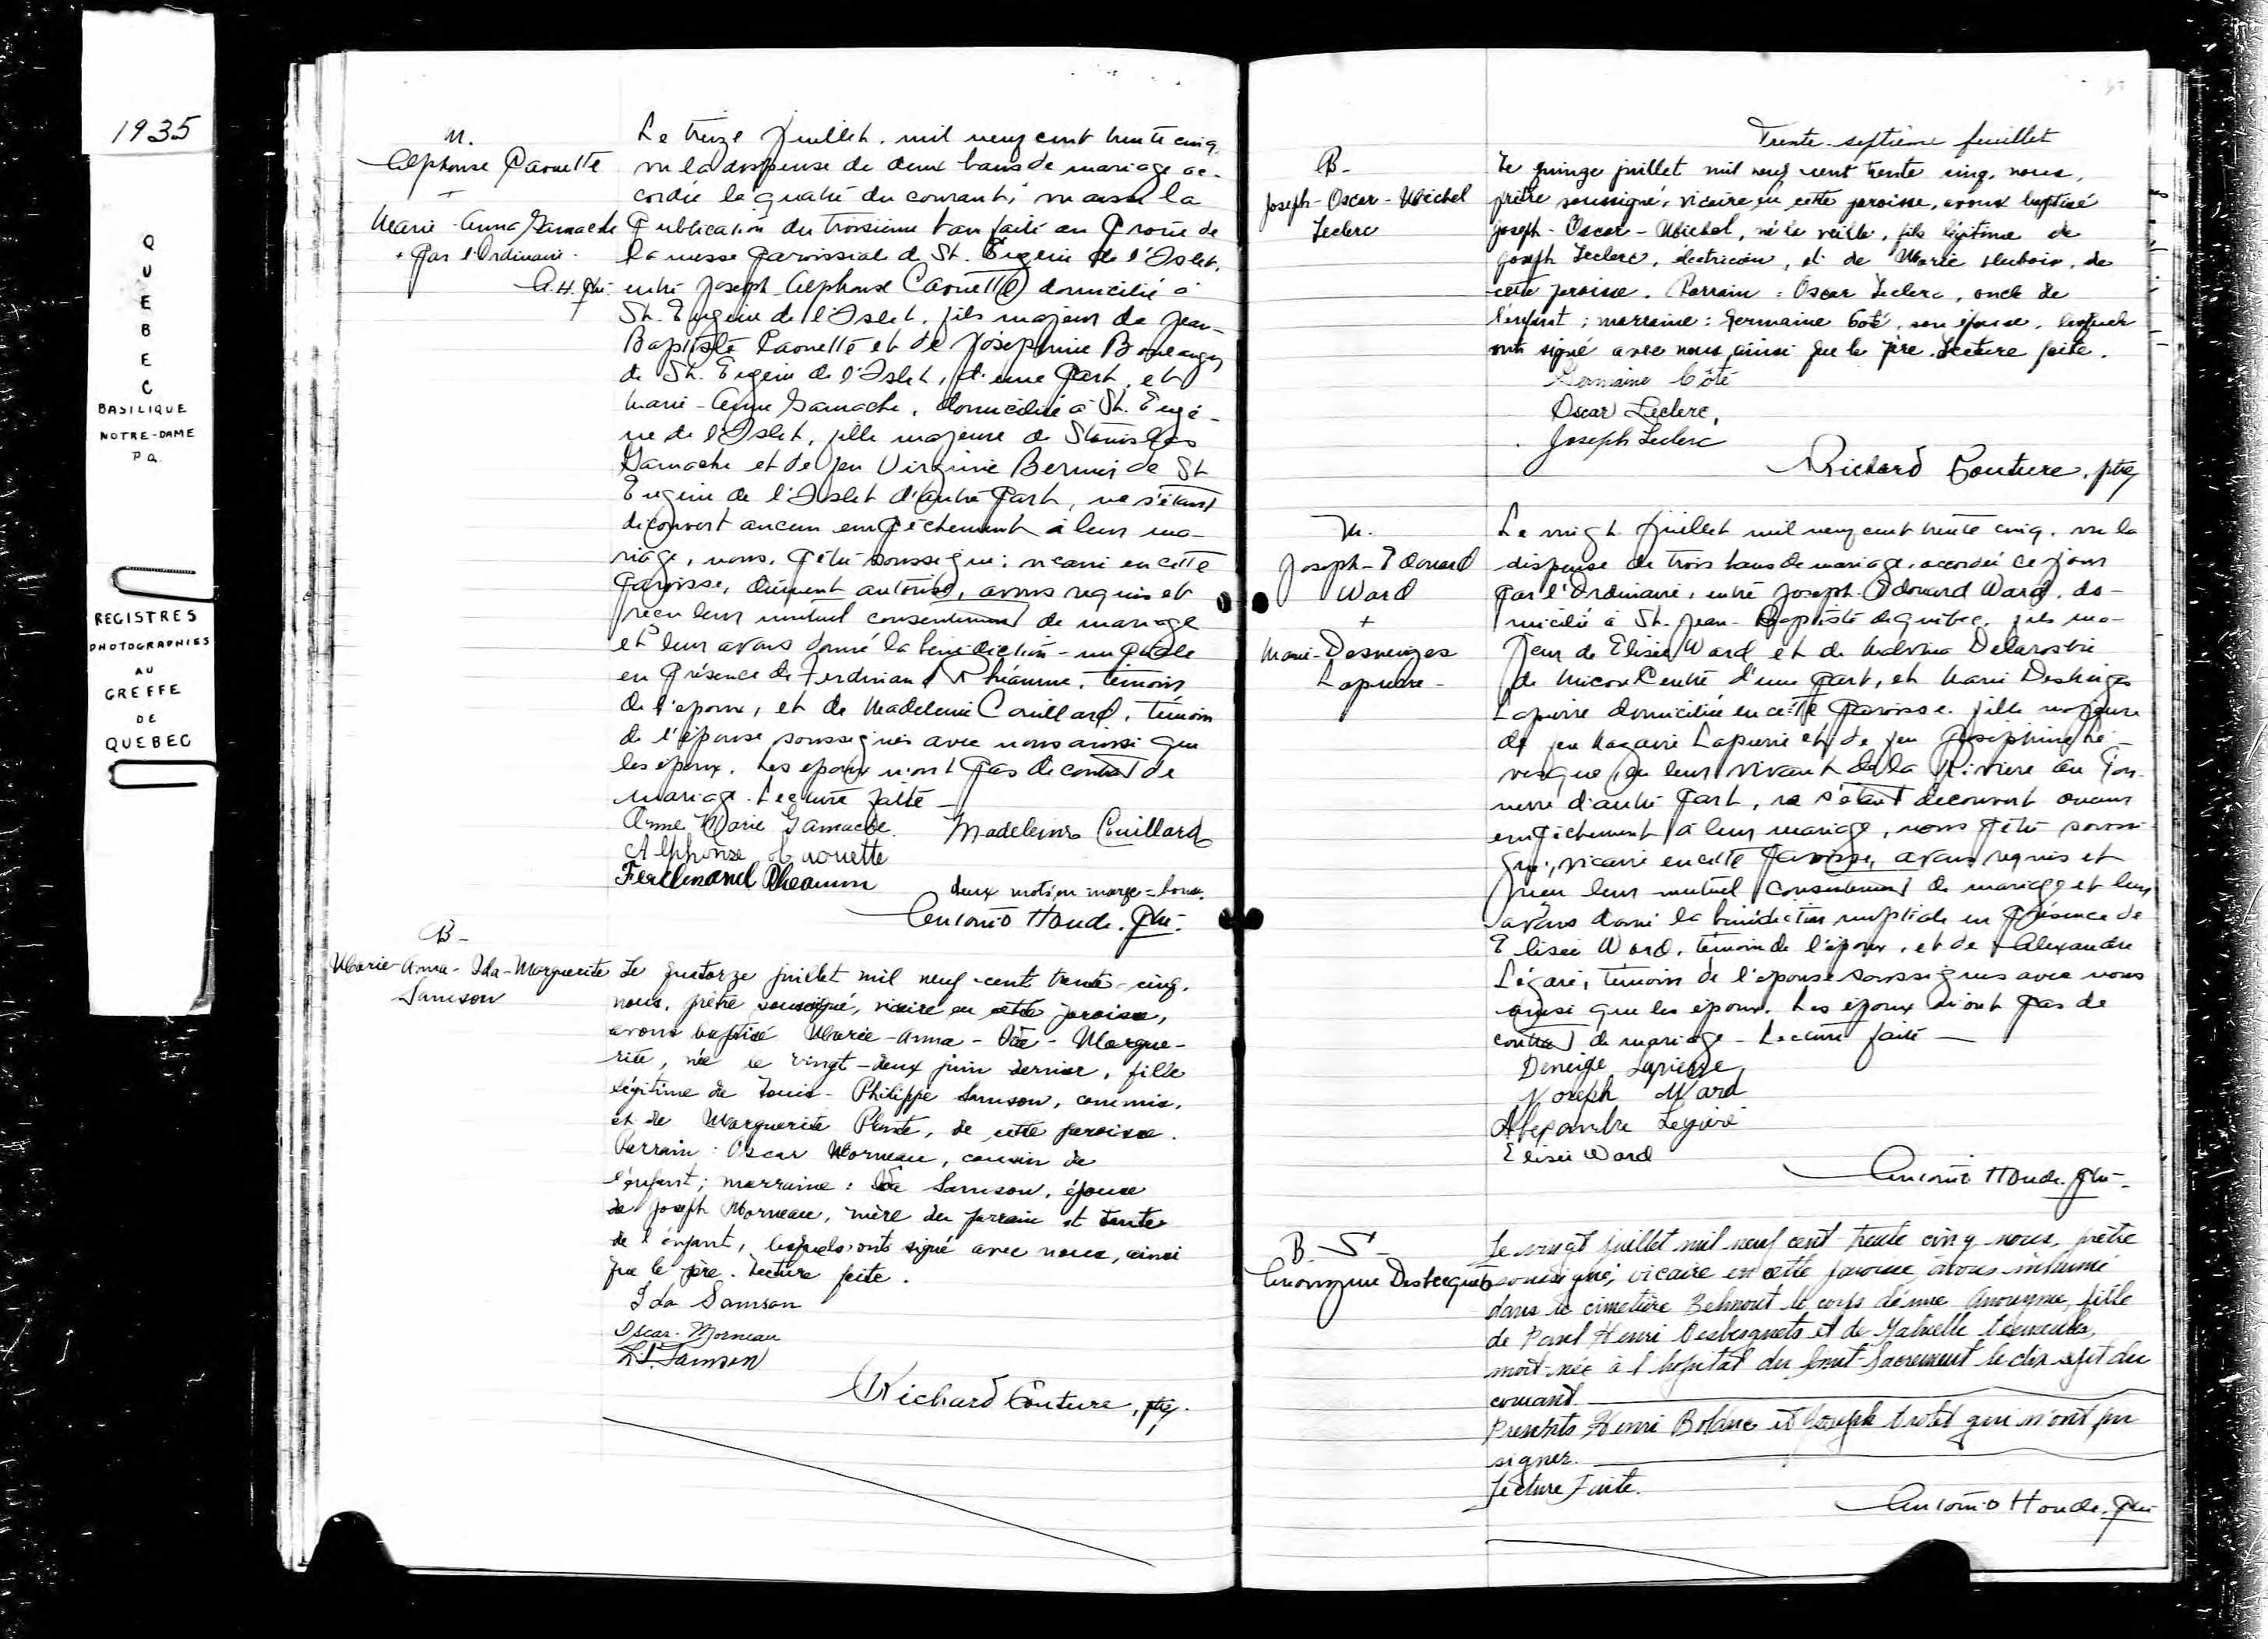 1935
QUEBEC
BASILIQUE
NOTRE-DAME
P Q.
REGISTRES
PHOTOGRAPHIES
AU
GREFFE
DE
QUEBEC
M.
Alphonse Caouette
+
Marie-Anna Gamache
par l'Ordinaire.
A.H. ptre
Le treize juillet, mil neuf cent trente cinq,
vu la dispense de deux bans de mariage ac-
cordée le quatre du courant; vu aussi la
publication du troisième ban faite au prône de
la messe paroissial de St. Eugène de l'Islet,
entre Joseph-Alphonse Caouette domicilié à
St. Eugène de l'Islet, fils majeur de Jean-
Baptiste Caouette et de Joséphine Boulanger
de St. Eugène de l'Islet, d'une part, et
Marie-Anna Gamache, domiciliée à St. Eugè-
ne de l'Islet, fille majeure de Stanislas
Gamache et de feu Virginie Bernier de St
Eugène de l'Islet d'autre part, ne s'étant
découvert aucun empêchement à leur ma-
riage, nous, prêtre soussigné; vicaire en cette
paroisse, dûment autorisé, avons requis et
reçu leur mutuel consentement de mariage
et leur avons donné la bénédiction nuptiale
en présence de Ferdinand Rhéaume, témoin
de l'époux, et de Madeleine Couillard, témoin
de l'épouse soussignés avec nous ainsi que
les époux. Les époux n'ont pas de contrat de
mariage. Lecture faite –
Anne Marie Gamache. Madeleine Couillard
Alphonse Caouette
Ferdinand Rheaume
deux mots en marge = bons.
Antonio Houde. ptre.
B-
Marie-Anna-Ida-Marguerite
Samson
Le quatorze juillet mil neuf cent trente-cinq,
nous, prêtre soussigné, vicaire en cette paroisse,
avons baptisé Marie-Anna-Ida-Margue-
rite, née le vingt-deux juin dernier, fille
légitime de Louis-Philippe Samson, commis,
et de Marguerite Plante, de cette paroisse.
Parrain: Oscar Morneau, cousin de
l'enfant; marraine: Ida Samson, épouse
de Joseph Morneau, mère du parrain et tante
de l'enfant, lesquels ont signé avec nous, ainsi
que le père. Lecture faite.
Ida Samson
Oscar. Morneau
L.P. Samson
Richard Couture, ptre.
Trente-septième feuillet
B-
Joseph-Oscar-Michel
Leclerc
Le quinze juillet mil neuf cent trente cinq, nous,
prêtre soussigné, vicaire en cette paroisse, avons baptisé
Joseph-Oscar-Michel, né la veille, fils légitime de
Joseph Leclerc, électricien, et de Marie Dubois, de
cette paroisse. Parrain: Oscar Leclerc, oncle de
l'enfant; marraine: Germaine Coté, son épouse, lesquels
ont signé avec nous, ainsi que le père. Lecture faite.
Germaine Côté
Oscar Leclerc,
Joseph Leclerc
Richard Couture, ptre
M.
Joseph-Edouard
Ward
+
Marie-Desneiges
Lapierre-
Le vingt juillet mil neuf cent trente cinq, vu la
dispense de trois bans de mariage, accordée ce jour
par l'Ordinaire, entre Joseph-Edouard Ward, do-
micilié à St. Jean-Baptiste de Québec, fils ma-
jeur de Elisée Ward et de Malvina Delarosbie
de Micoe Centre d'une part, et Marie Desneiges
Lapierre domiciliée en cette paroisse. fille majeure
de feu Magaire Lapierre et de feu Joséphine Lé-
vesque, en leur vivant de la Rivière au Ton-
nerre d'autre part, ne s'étant découvert aucun
empêchement à leur mariage, nous prêtre soussi-
gné, vicaire en cette paroisse, avons requis et
reçu leur mutuel consentement de mariage et leur
avons donné la bénédiction nuptiale en présence de
Elisée Ward, témoin de l'époux, et de Alexandre
Légaré, témoin de l'épouse soussignés avec nous
ainsi que les époux. Les époux n'ont pas de
contrat de mariage – Lecture faite –
Deneige Lapierre
Joseph Ward
Alexandre
Elisée Ward
Antonio Houde. ptre.
B-S-
Anonyme Desbecquets
Le vingt juillet mil neuf cent trente cinq nous, prêtre
soussigné, vicaire en cette paroisse, avons inhumé
dans le cimetière Belmont le corps d'une Anonyme, fille
de Paul Henri Desbecquets et de Gabrielle
mort-née à l'hopital du Saint-Sacrement le dix sept du
courant.
Présents Henri Bolduc et Joseph Trotel qui n'ont pu
signer.
Lecture Faite.
Antonio Houde. ptre